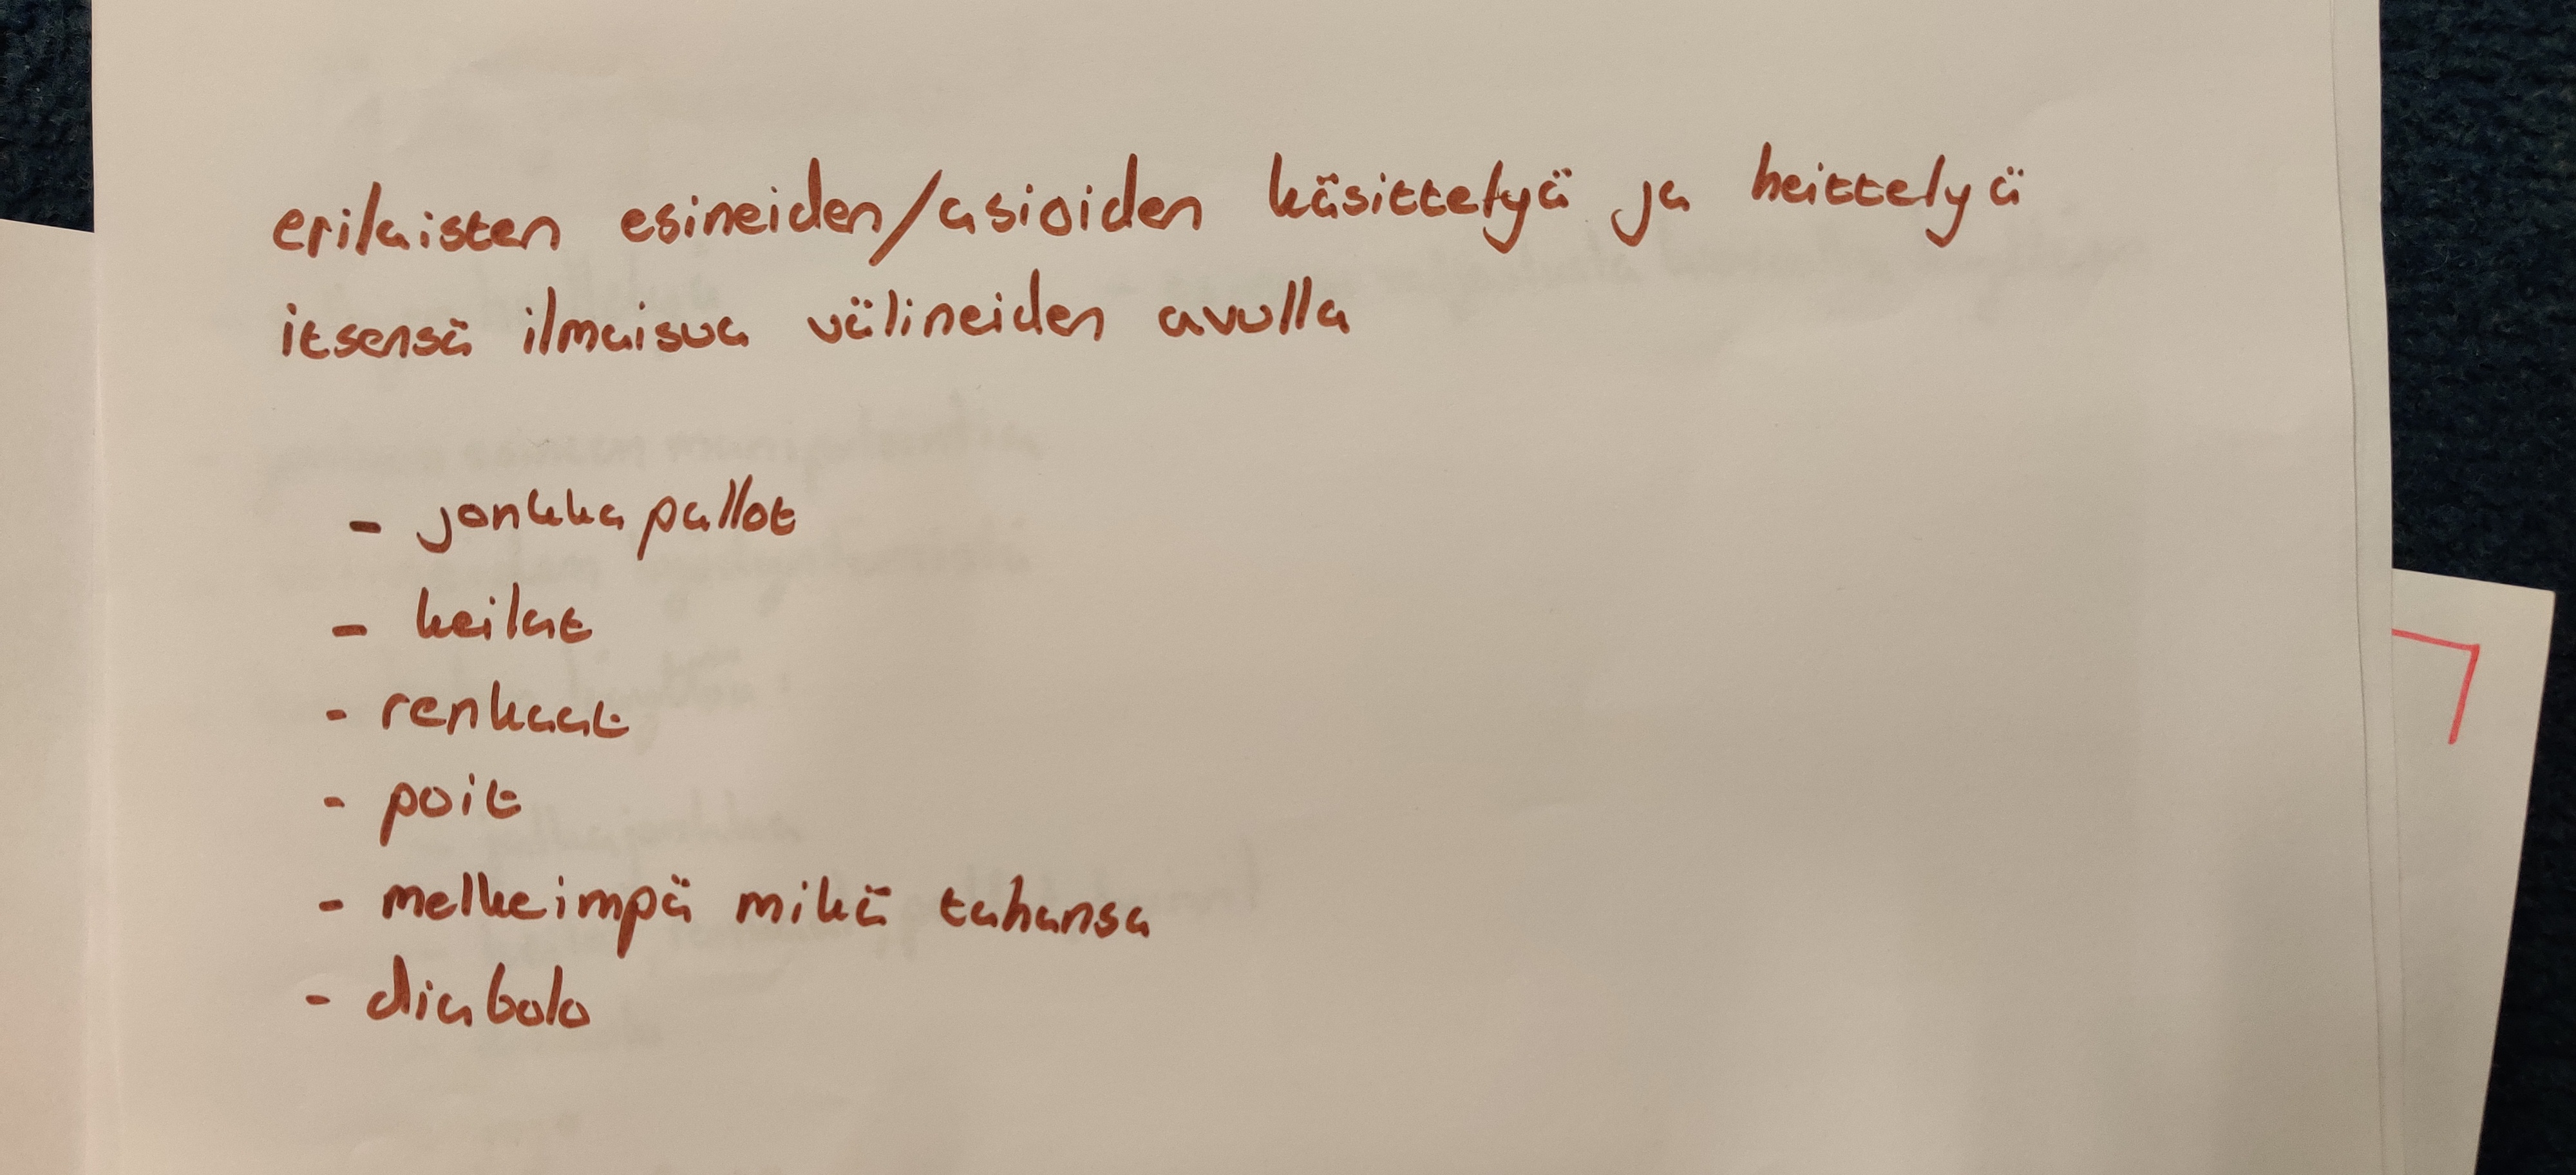 erilaisten esineiden/asioiden käsittelyä ja heittelyä
itsensä ilmaisua välineiden avulla
- jonkka pallot
- keilat
- renkaat
- poit
- melkeimpä mikä tahansa
- diabolo